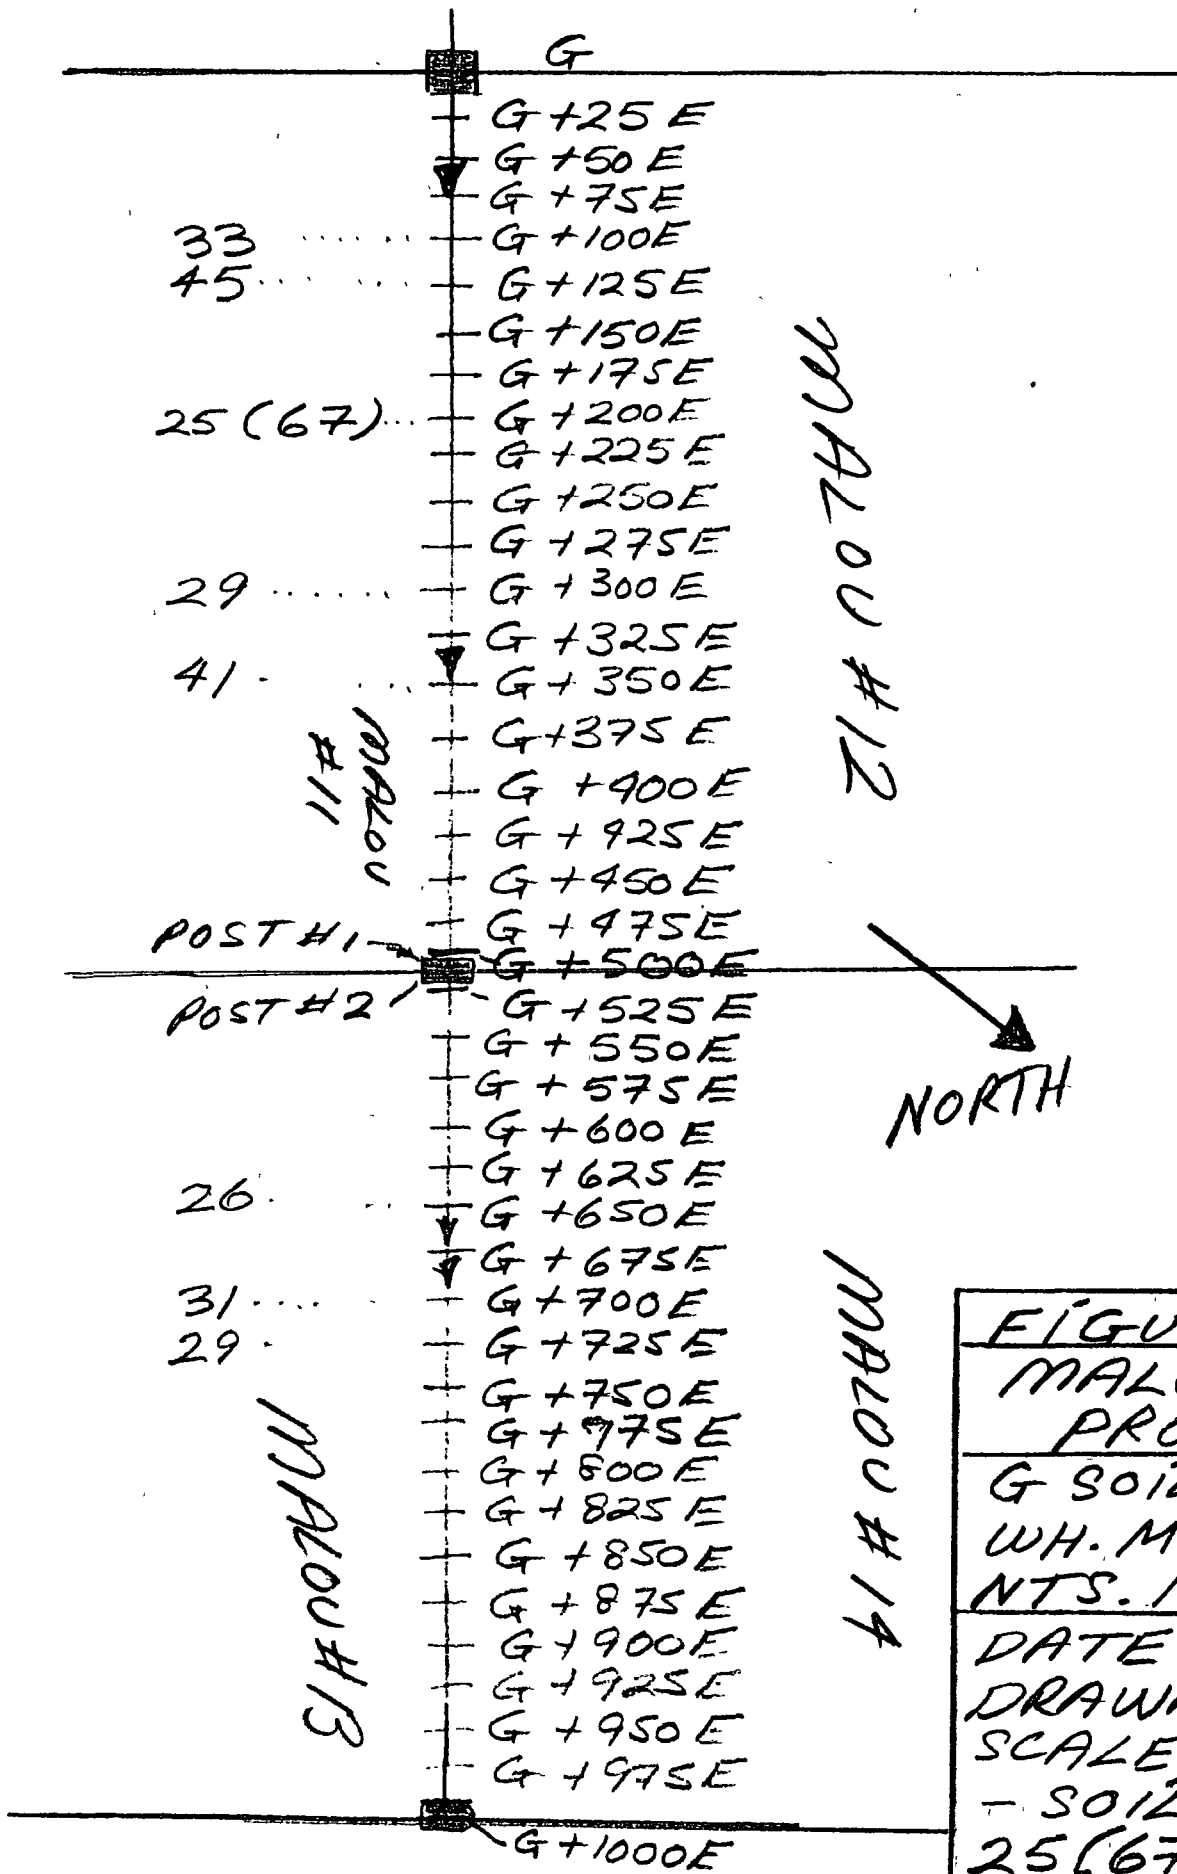 G
G +25 E
G +50 E
G +75E
33 ..... G +100E
45 ..... G +125E
G +150E
G +175E
25 (67) ... G +200E
G +225E
G +250E
G +275E
29 ...... G +300E
G +325E
41 ... G +350E
G +375E
G +400E
G +425E
G +450E
G +475E
POST #1
G +500E
POST #2
G +525E
G +550E
G +575E
G +600E
G +625E
26 ... G +650E
G +675E
31 ..... G +700E
29 . G +725E
G +750E
G +775E
G +800E
G +825E
G +850E
G +875E
G +900E
G +925E
G +950E
G +975E
G +1000E
MALOU
#11
MALOU #12
NORTH
MALOU #13
MALOU #14
FIGU
MAL
PRO
G SOIL
WH. M
NTS. 
DATE
DRAW
SCALE
- SOIL
25(67